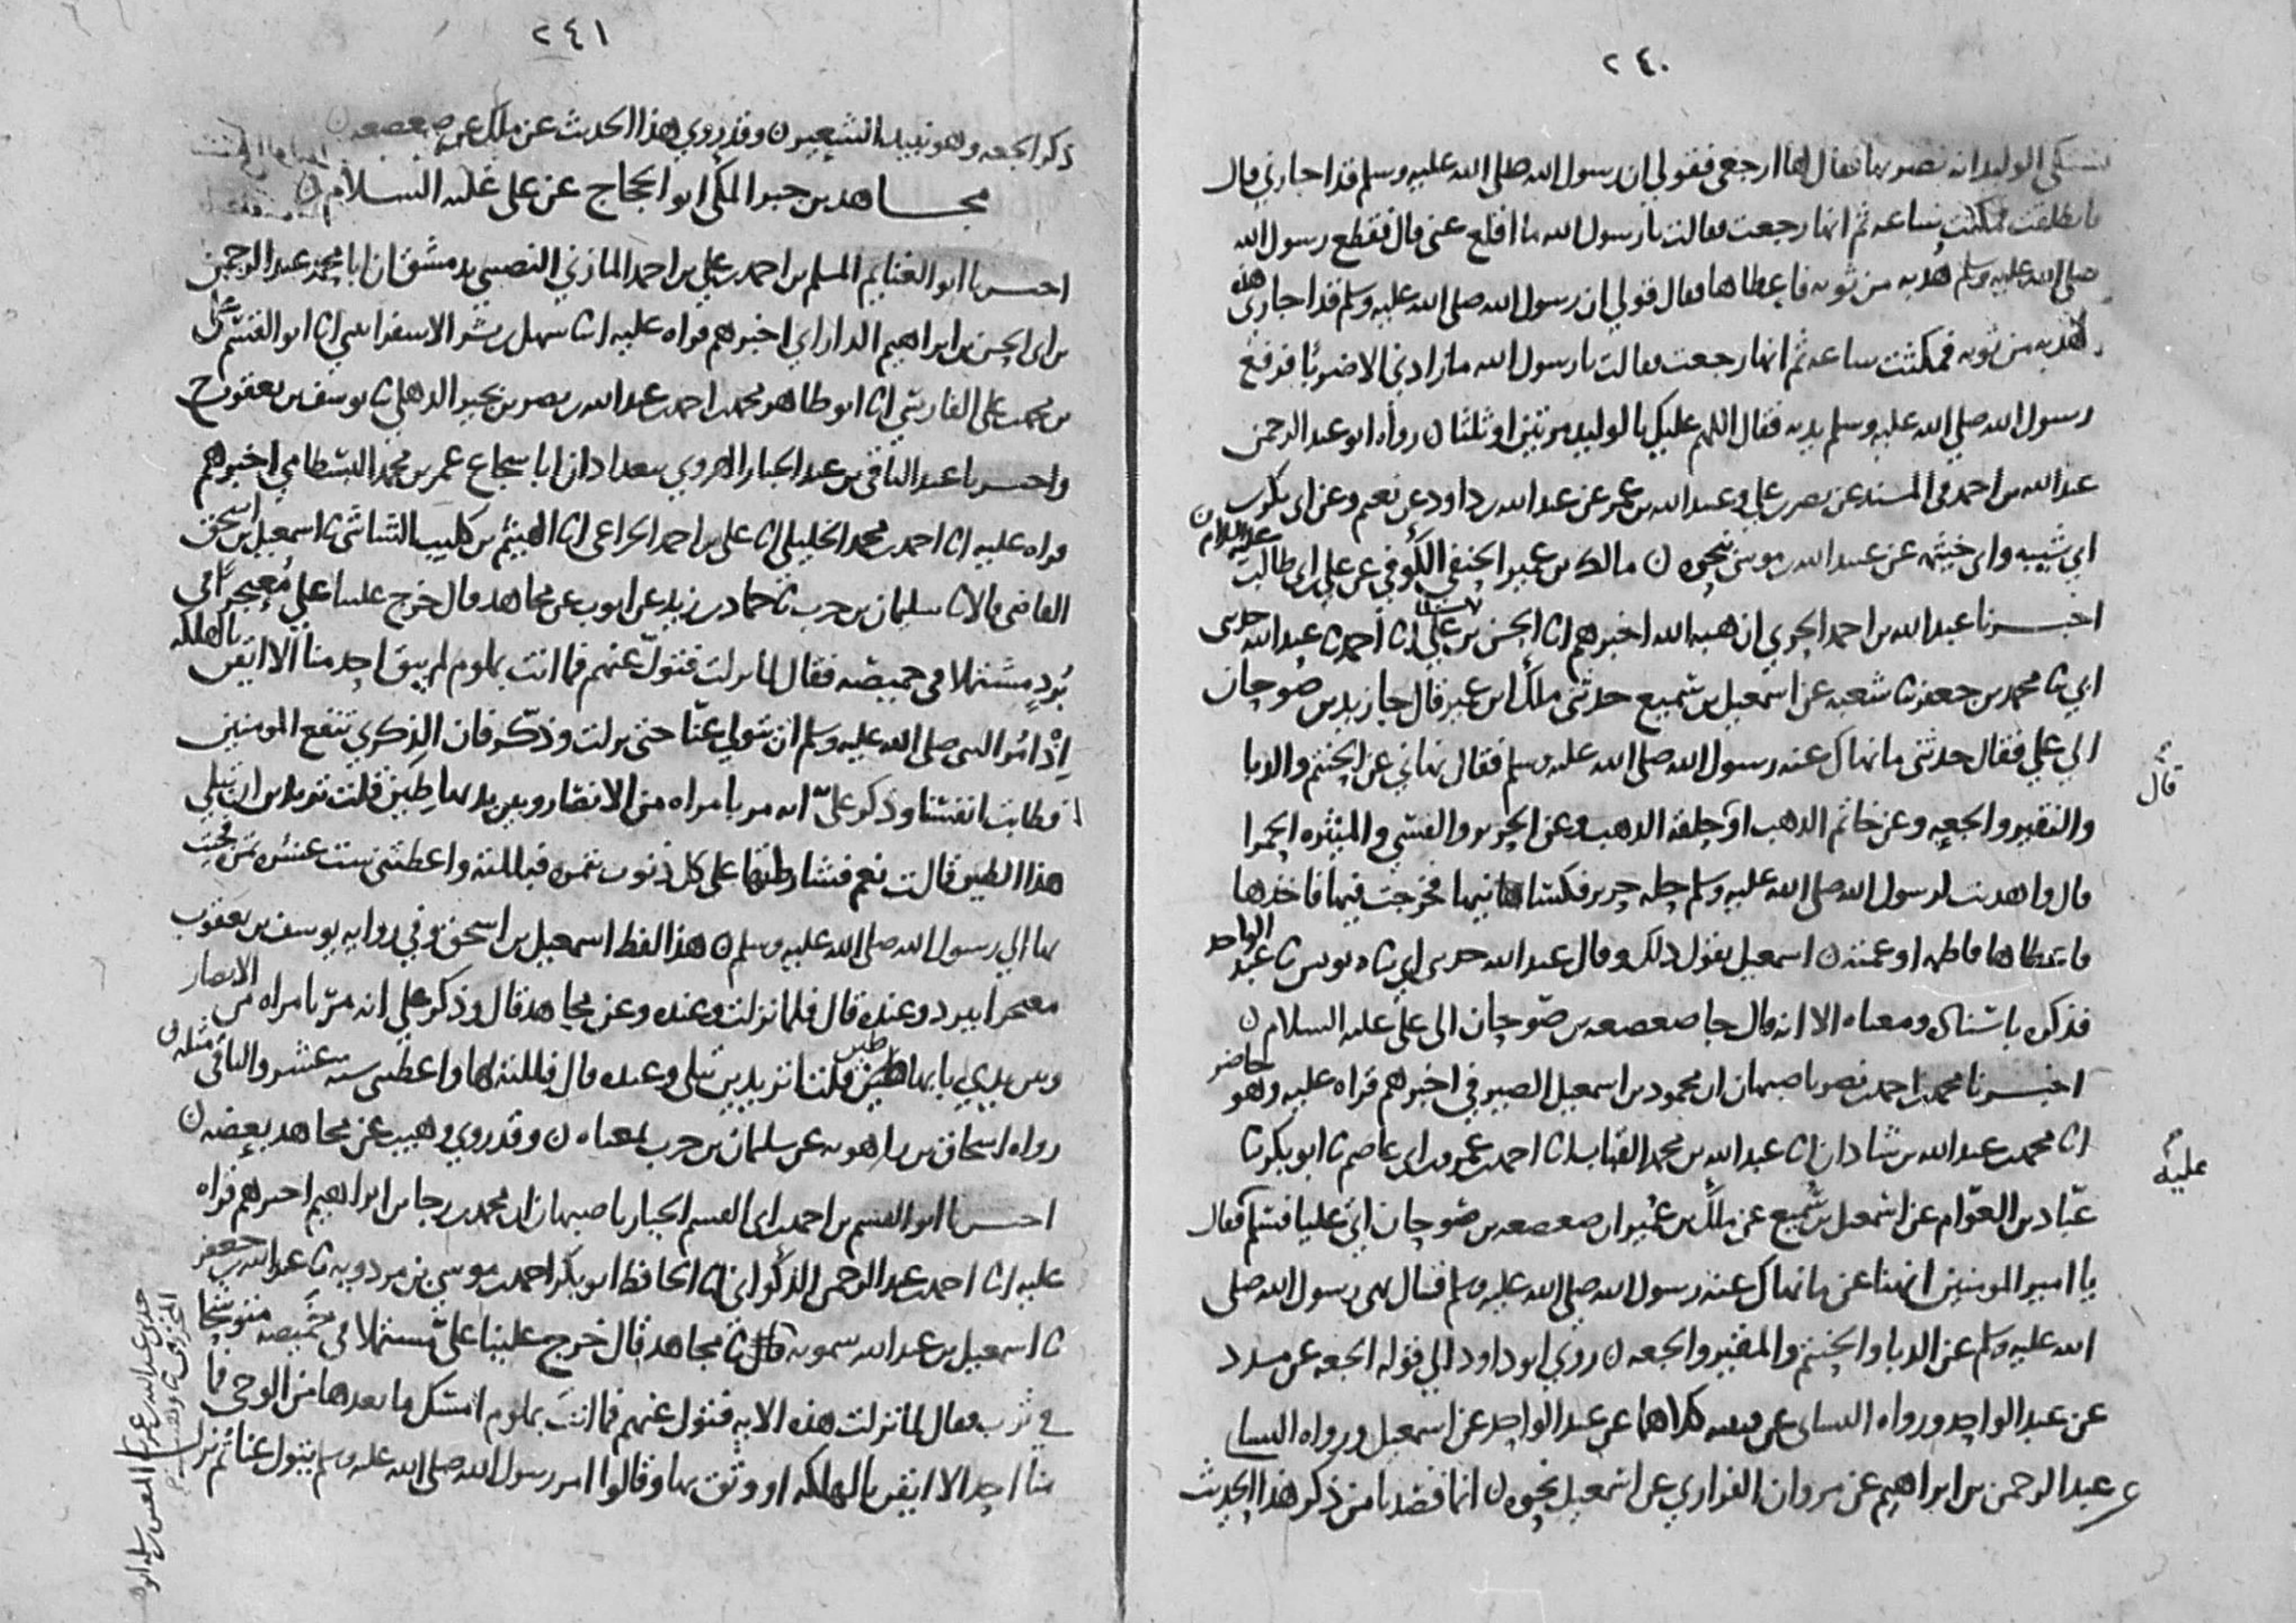 ٢٤٠
تشتكي الوليد انه يضربها فقال لها ارجعي فقولي ان رسول الله صلى الله عليه وسلم قد اجارني قال
فانطلقت فمكثت ساعه ثم انها رجعت فقالت يا رسول الله ما اقلع عني قال فقطع رسول الله
صلى الله عليه وسلم هدبه من ثوبه فاعطاها فقال قولي ان رسول الله صلى الله عليه وسلم قد اجارني هذه
هدبه من ثوبه فمكثت ساعه ثم انها رجعت فقالت يا رسول الله ما زادني الا ضربا فرفع
رسول الله صلى الله عليه وسلم يديه فقال اللهم عليك بالوليد مرتين او ثلثا ن رواه ابو عبد الرحمن
عبد الله بن احمد في المسند عن نصر بن علي وعبيد الله بن عمر عن عبد الله بن داود عن نعيم وعن ابي بكر بن
ابي شيبه وابي خيثمه عن عبيد الله بن موسى نحوه ن مالك بن عمير الحنفي الكوفي عن علي بن ابي طالب عليه السلام ن
اخبرنا عبد الله بن احمد الحربي ان هبه الله اخبرهم انا الحسن بن علي انا احمد نا عبد الله حدثني
ابي نا محمد بن جعفر نا شعبه عن اسمعيل بن سميع حدثني ملك ابن عمير قال جا زيد بن صوحان
الى علي فقال حدثني ما نهاك عنه رسول الله صلى الله عليه وسلم فقال نهاني عن الحنتم والدبا
والنقير والجعه وعن خاتم الذهب او حلقه الذهب وعن الحرير والقسي والميثره الحمرا
قال واهديت لرسول الله صلى الله عليه وسلم حله حرير فكسانيها فخرجت فيها فاخذها
فاعطاها فاطمه او عمته ن اسمعيل يقول ذلك وقال عبد الله حدثني ابي نا يونس نا عبد الواحد
فذكره باسناده ومعناه الا انه قال جا صعصعه بن صوحان الى علي عليه السلام ن
اخبرنا محمد بن احمد بن نصر باصبهان ان محمود بن اسمعيل الصيرفي اخبرهم قراه عليه وهو حاضر
انا محمد بن عبد الله بن شاذان انا عبد الله بن محمد القباب انا احمد بن عمرو بن ابي عاصم نا ابو بكر نا
عبّاد بن العوّام عن اسمعيل بن سميع عن ملك بن عمير ان صعصعه بن صوحان اتى عليا فسلم فقال
يا امير المومنين انهنا عن ما نهاك عنه رسول الله صلى الله عليه وسلم فقال نهى رسول الله صلى
الله عليه وسلم عن الدبا والحنتم والمقير والجعه ن روى ابو داود الى قوله الجعه عن مسدد
عن عبد الواحد ورواه النساي عن قتيبه كلاهما عن عبد الواحد عن اسمعيل ورواه النساي
عن عبد الرحمن بن ابراهيم عن مروان الفزاري عن اسمعيل نحوه ن انما قصدنا من ذكر هذا الحديث
قال
عليه
٢٤١
ذكر الجعه وهو نبيذ الشعير ن وقد روي هذا الحديث عن ملك عن صعصعه ن
مجاهد بن جبر المكي ابو الحجاج عن علي عليه السلام ن
اخبرنا ابو الغنايم المسلم بن احمد بن علي بن احمد المازني النصيبي بدمشق ان ابا محمد عبد الرحمن
بن ابي الحسن بن ابراهيم الداراي اخبرهم قراه عليه انا سهل بن بشر الاسفرايني انا ابو الحسن علي
بن محمد بن علي الفارسي انا ابو طاهر محمد بن احمد بن عبد الله بن نصر بن بجير الذهلي نا يوسف بن يعقوب ح
واخبرنا عبد الباقي بن عبد الجبار الهروي ببغداد ان ابا شجاع عمر بن محمد البسطامي اخبرهم
قراه عليه انا احمد بن محمد الخليلي انا علي بن احمد الخزاعي انا الهيثم بن كليب الشاشي نا اسمعيل بن اسحق
القاضي قالا نا سليمان بن حرب نا حماد بن زيد عن ايوب عن مجاهد قال خرج علينا علي مُعتجِرًا في
بُردٍ مشتملا في خميصه فقال لما نزلت فتولّ عنهم فما انت بملوم لم يبق احد منا الا ايقن بالهلكه
اِذْ اُمُر النبي صلى الله عليه وسلم ان يتولى عنّا حتى نزلت وذكّر فان الذكرى تنفع المومنين
فطابت انفسنا وذكر عليّ انه مر بامراه من الانصار وبين يديها طين قلت تريدين ان تبلي
هذا الطين قالت نعم فشارطتها على كل ذنوب بتمره فبللته واعطتني ست عشره تمره فجيت
بها الى رسول الله صلى الله عليه وسلم ن هذا لفظ اسمعيل بن اسحق وفي روايه يوسف بن يعقوب
معتجرا ببرد وعنده قال فلما نزلت وعنده وعن مجاهد قال وذكر علي انه مرّ بامراه من الانصار
وبين يدي بابها طين قلت اتريدين تبلي وعنده قال فبللته لها واعطتني سته عشر والباقي مثله ن
رواه اسحاق بن راهويه عن سليمان بن حرب بمعناه ن وقد روى وهيب عن مجاهد بعضه ن
اخبرنا ابو القسم بن احمد بن ابي القسم الخباز باصبهان ان محمد بن رجا بن ابراهيم اخبرهم قراه
عليه انا احمد بن عبد الرحمن الذكواني انا الحافظ ابو بكر احمد بن موسى بن مردويه نا عبد الله بن جعفر
نا اسمعيل بن عبد الله سمويه نا مجاهد قال خرج علينا علي مشتملا في خميصه متوشحا
في ثوب فقال لما نزلت هذه الايه فتول عنهم فما انت بملوم اشتكل ما بعدها من الوحي فما
منا احد الا ايقن بالهلكه او وثق بها وقالوا امر رسول الله صلى الله عليه وسلم يتول عنا ثم نزل